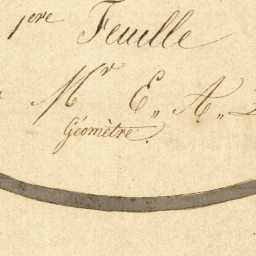 1ere Feuille
Mr E,, A,,
Géomètre.